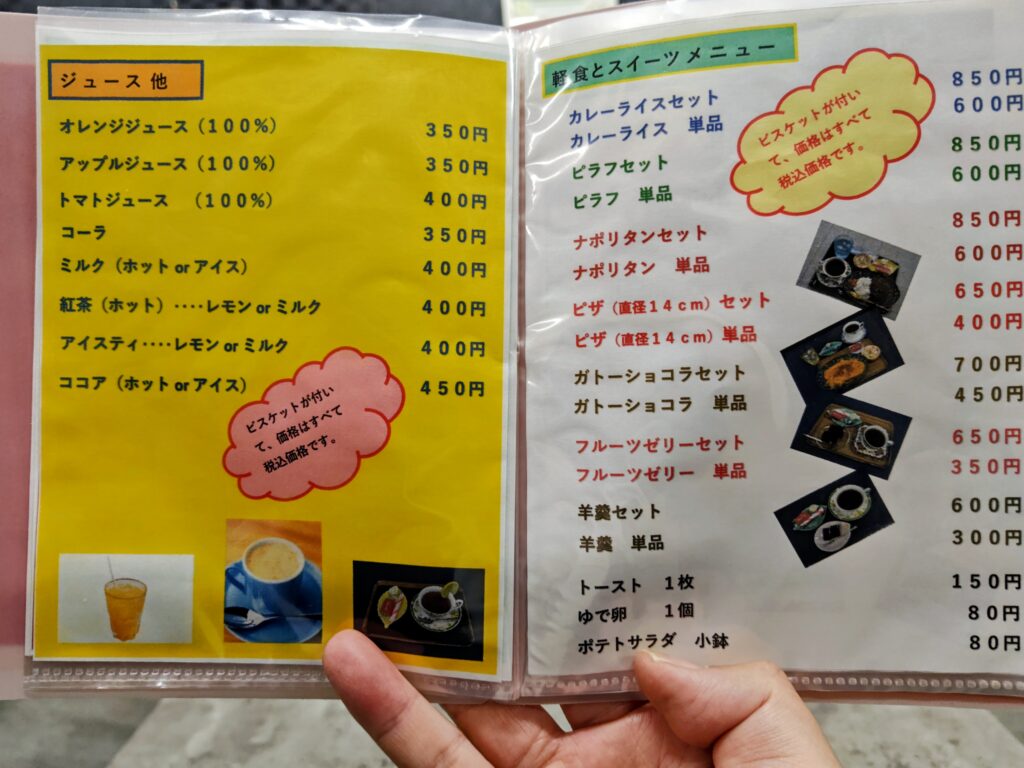 ジュース 他
オレンジジュース（１００%） ３５０円
アップルジュース（１００%） ３５０円
トマトジュース （１００%） ４００円
コーラ ３５０円
ミルク（ホット or アイス） ４００円
紅茶（ホット）‥‥レモン or ミルク ４００円
アイスティ‥‥レモン or ミルク ４００円
ココア（ホット or アイス） ４５０円
ビスケットが付い
て、価格はすべて
税込価格です。
軽食とスイーツメニュー
カレーライスセット ８５０円
カレーライス 単品 ６００円
ピラフセット ８５０円
ピラフ 単品 ６００円
ナポリタンセット ８５０円
ナポリタン 単品 ６００円
ピザ（直径１４ｃｍ）セット ６５０円
ピザ（直径１４ｃｍ）単品 ４００円
ガトーショコラセット ７００円
ガトーショコラ 単品 ４５０円
フルーツゼリーセット ６５０円
フルーツゼリー 単品 ３５０円
羊羹セット ６００円
羊羹 単品 ３００円
トースト １枚 １５０円
ゆで卵 １個 ８０円
ポテトサラダ 小鉢 ８０円
ビスケットが付い
て、価格はすべて
税込価格です。